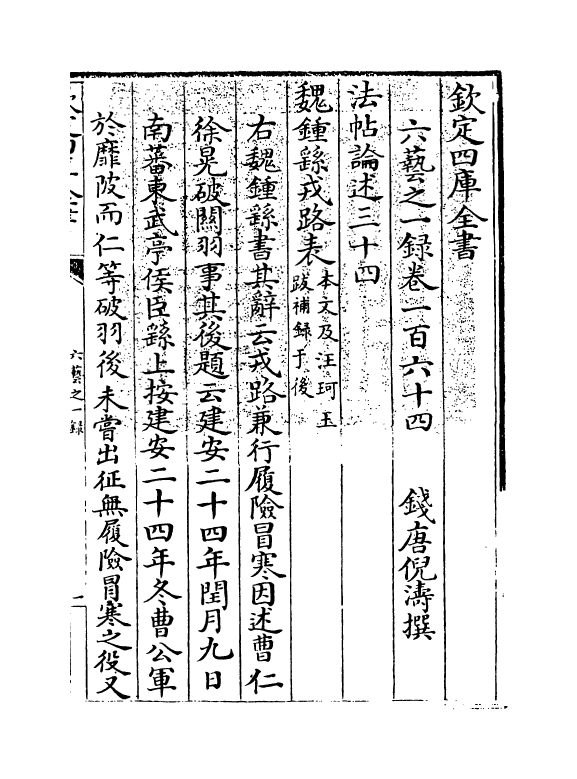 欽定四庫全書
六藝之一録卷一百六十四
錢唐倪濤撰
法帖論述三十四
魏鍾繇戎路表本文及汪珂玉
跋補録于後
右魏鍾繇書其辭云戎路兼行履險冒寒因述曹仁
徐晃破關羽事其後題云建安二十四年閏月九日
南蕃東武亭侯臣繇上按建安二十四年冬曹公軍
於靡陂而仁等破羽後未嘗出征無履險冒寒之役又
六藝之一録
一